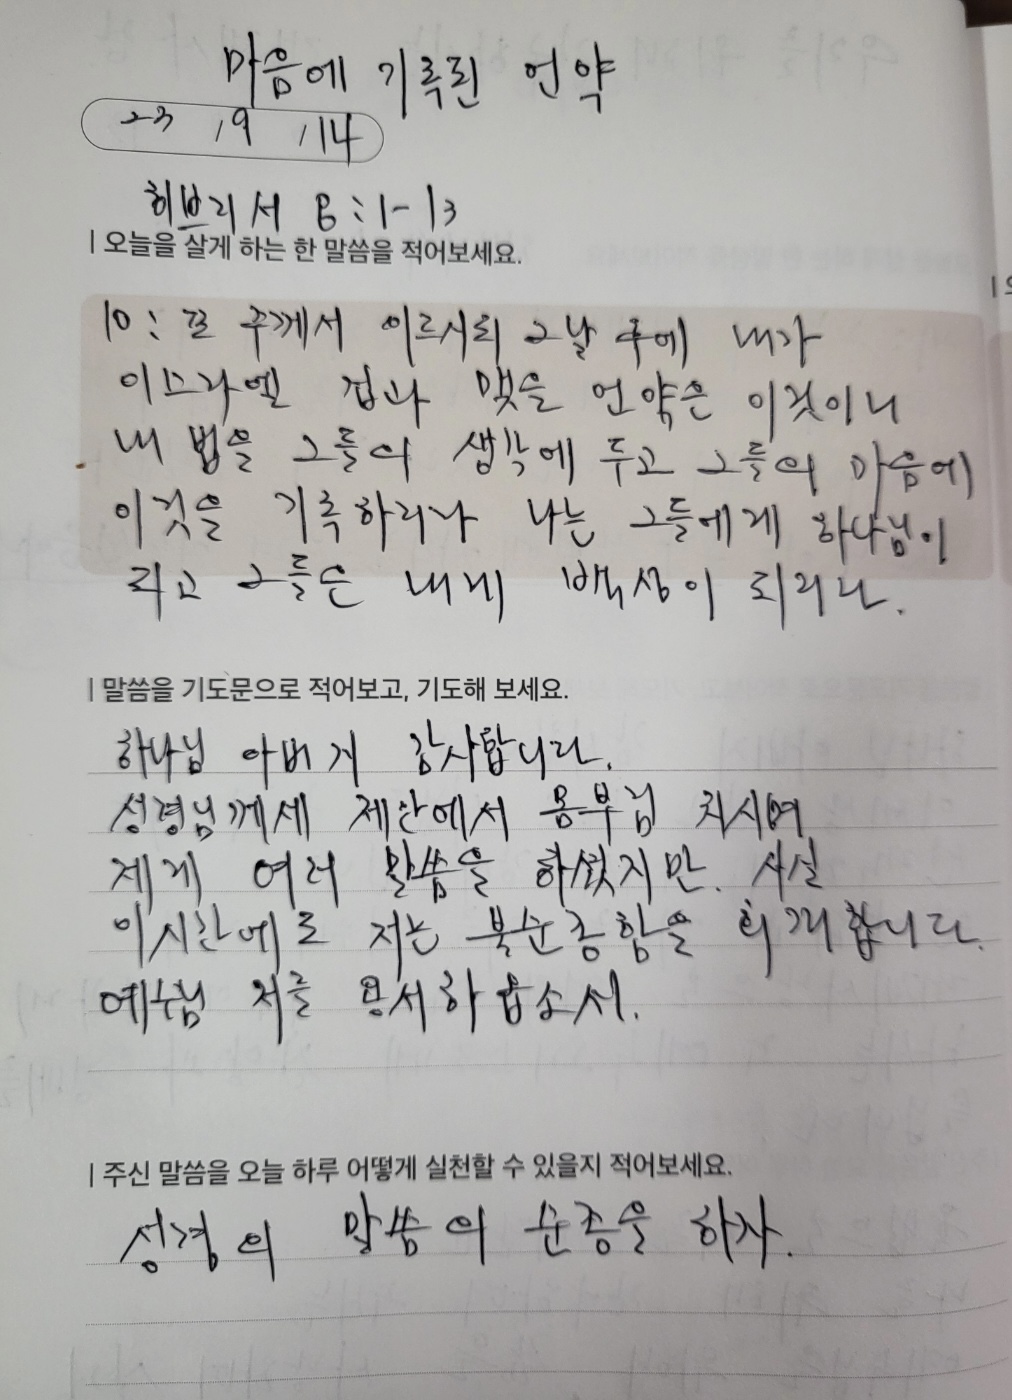 마음에 기록된 언약
23 , 9 , 14
히브리서 8:1-13
| 오늘을 살게 하는 한 말씀을 적어보세요.
10: 또 주께서 이르시되 그날 후에 내가
이스라엘 집과 맺을 언약은 이것이니
내 법을 그들의 생각에 두고 그들의 마음에
이것을 기록하리라 나는 그들에게 하나님이
되고 그들은 내게 백성이 되리라.
| 말씀을 기도문으로 적어보고, 기도해 보세요.
하나님 아버지 감사합니다.
성령님께세 제안에서 치시며
제게 여러 말씀을 하셨지만. 사실
이시간에도 저는 불순종함을 회개합니다.
예수님 저를 용서하옵소서.
| 주신 말씀을 오늘 하루 어떻게 실천할 수 있을지 적어보세요.
성경의 말씀의 순종을 하자.